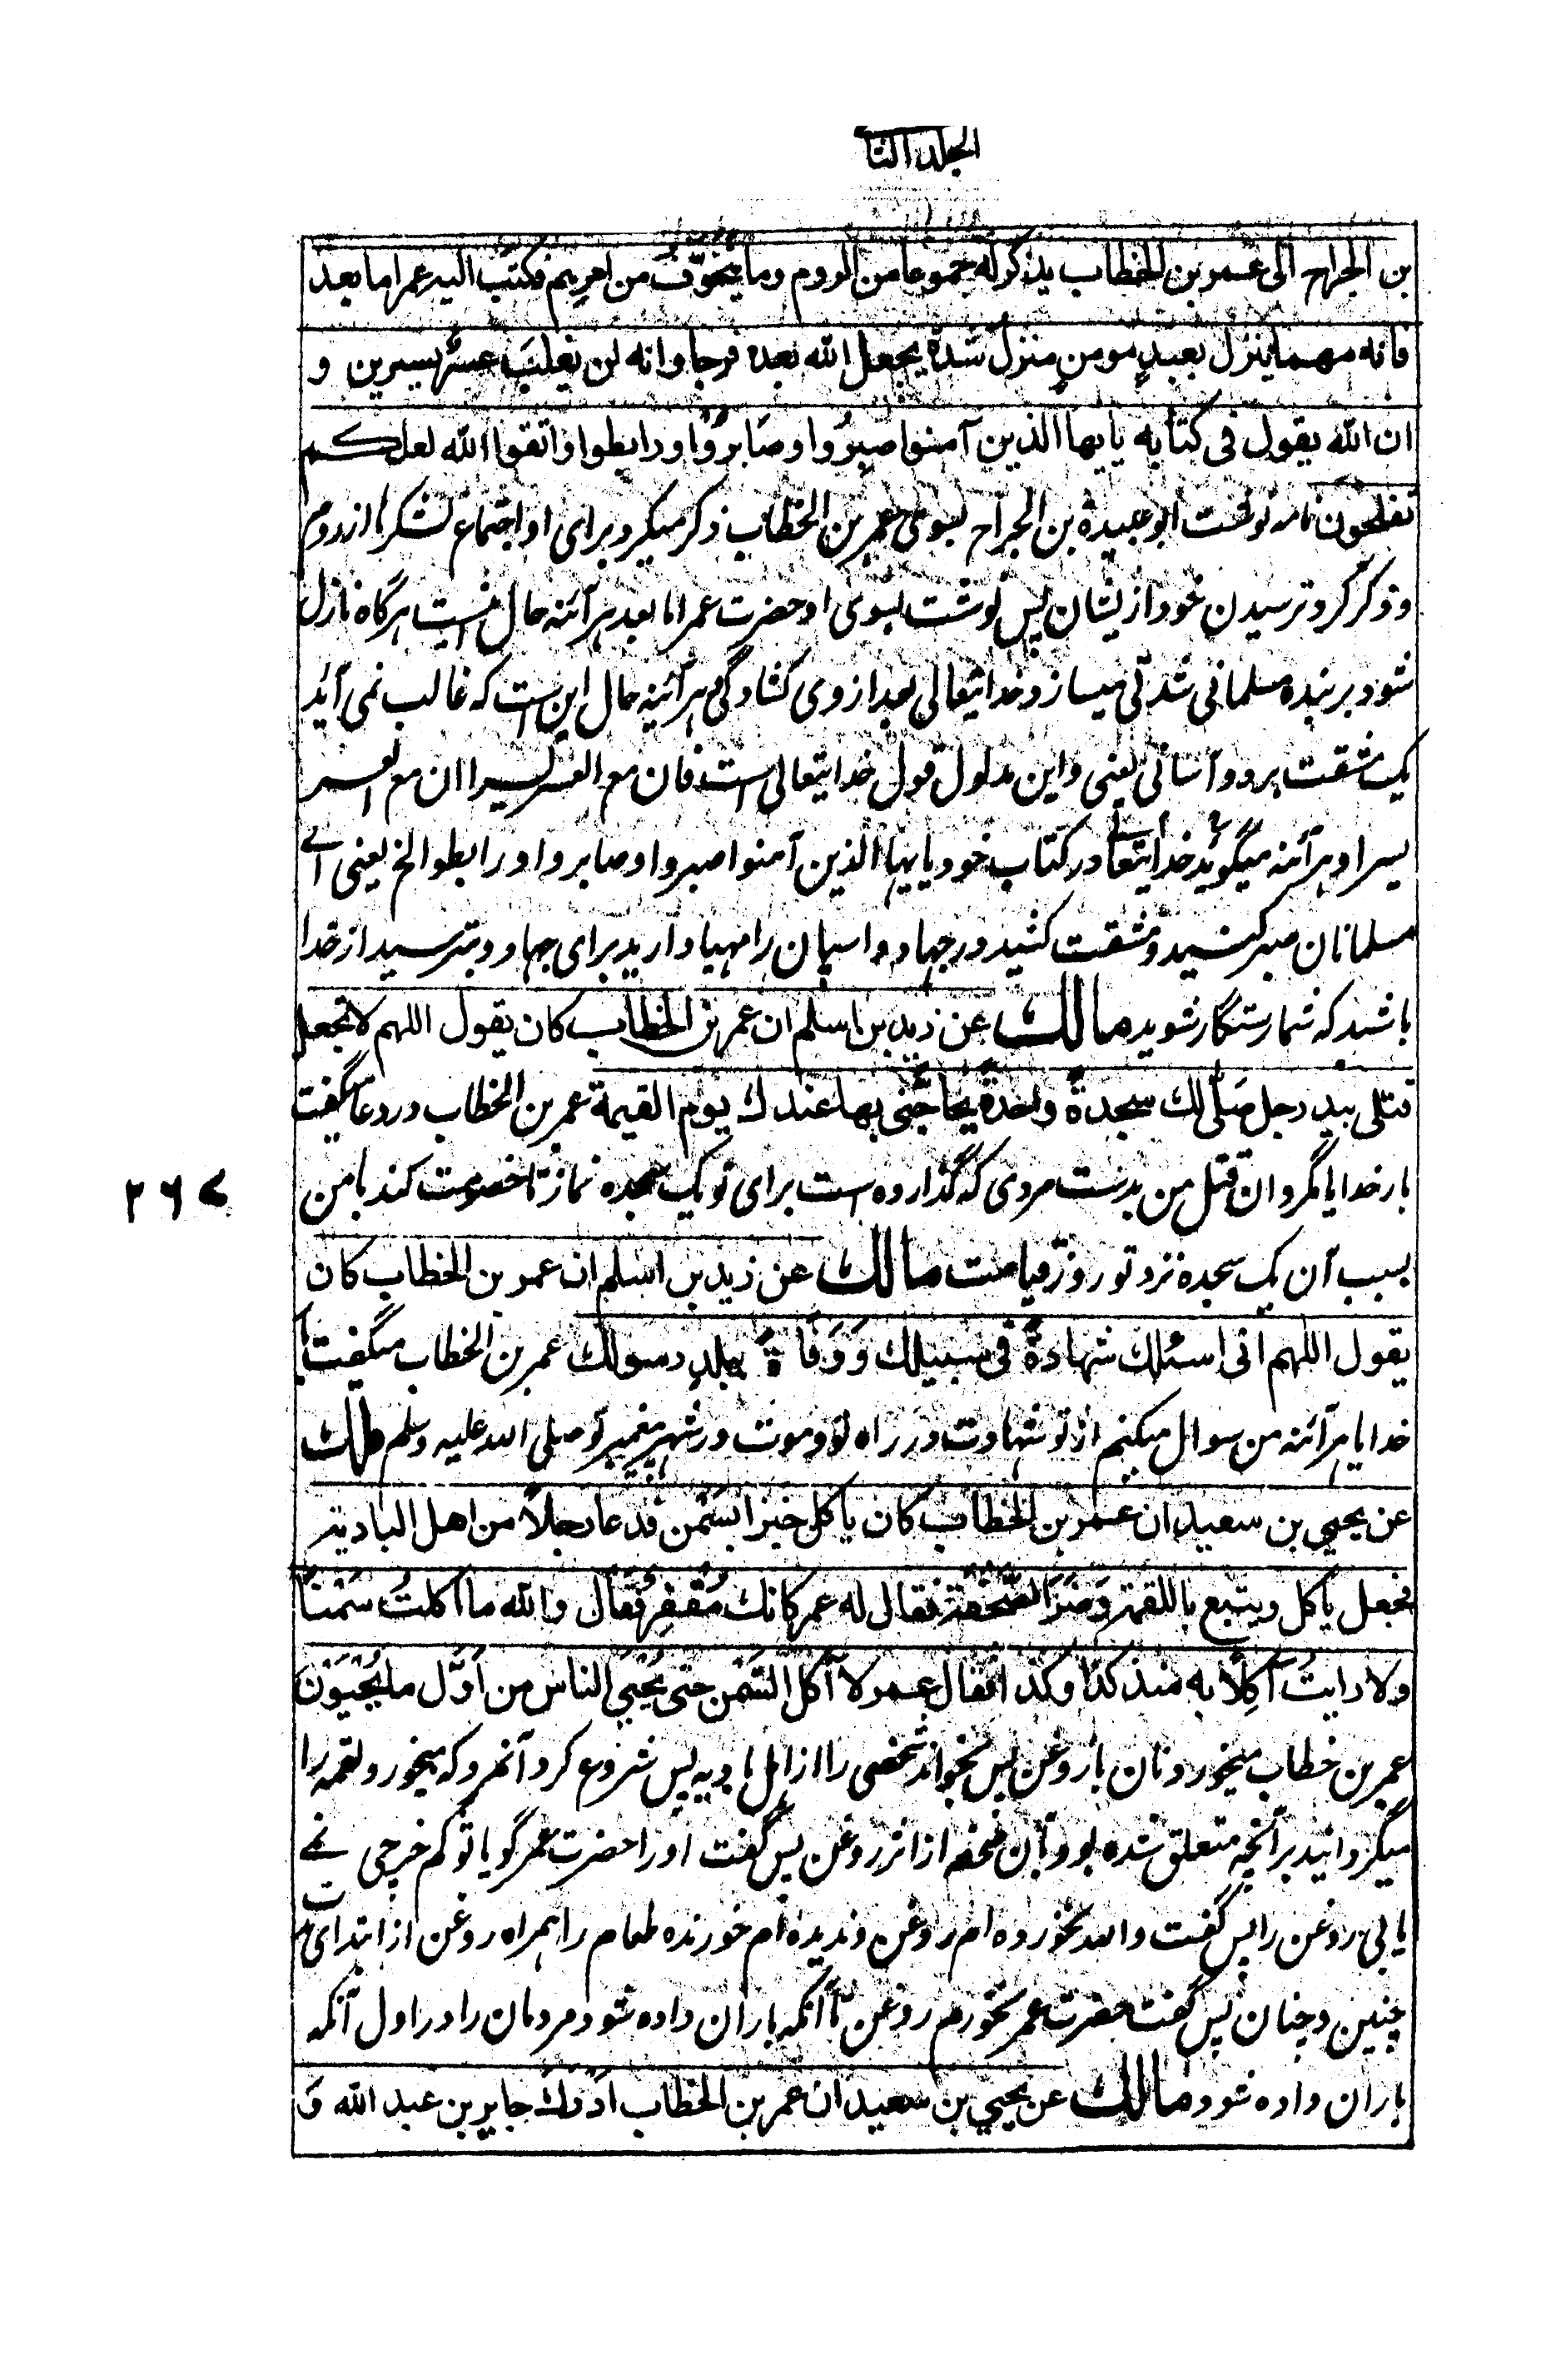 الجلد الثا
بن الجراح الى عمر بن الخطاب يذكر له جموعا من الروم وما يتخوّف من امرهم فكتب اليه عمر اما بعد
فانه مهما ينزل بعبدٍ مومنٍ منزل شدة يجعل الله بعده فرجا وانه لن يغلبَ عسرٌ يسرين و
ان الله يقول فى كتابه يايها الذين آمنوا اصبروا وصابروا ورابطوا واتقوا الله لعلكم
تفلحون نامه نوشت ابو عبيدة بن الجراح بسوى عمر بن الخطاب ذكر ميكرد براى او اجتماع لشكرها از روم
و ذكر كرد ترسيدن خود ازيشان پس نوشت بسوى او حضرت عمر اما بعد هر آئنه حال اينست هرگاه نازل
شود بر بنده مسلمانى شدتى ميسازد خدايتعالى بعد از وى كشادگى و هر آئينه حال اين است كه غالب نمى آيد
يك مشقت بر دو آسانى يعنى و اين مدلول قول خدايتعالى است فان مع العسر يسرا ان مع العسر
يسرا و هر آئنه ميگويد خدايتعالے در كتاب خود يايها الذين آمنوا اصبروا وصابروا ورابطوا الخ يعنى اے
مسلمانان صبر كنيد و مشقت كشيد در جهاد و اسپان را مهيا داريد براى جهاد و بترسيد از خدا
باشد كه شما رستگار شويد مالك عن زيد بن اسلم ان عمر بن الخطاب كان يقول اللهم لا تجعل
قتلى بيد رجل صَلّى لك سجدةً واحدةً يحاجّنى بها عندك يوم القيمة عمر بن الخطاب در دعا ميگفت
بار خدايا مگردان قتل من بدست مردى كه گذارده است براى تو يك سجده نماز تا خصومت كند با من
٢٦٧
بسبب آن يك سجده نزد تو روز قيامت مالك عن زيد بن اسلم ان عمر بن الخطاب كان
يقول اللهم انى اسئلك شهادةً فى سبيلك وَوَفَاةً ببلدِ رسولك عمر بن الخطاب ميگفت با
خدايا هر آئنه من سوال ميكنم از تو شهادت در راه تو و موت در شهر پيغمبر تو صلى الله عليه وسلم مالك
عن يحيى بن سعيد ان عمر بن الخطاب كان ياكل خبزا بسَمْن فدعا رجلاً من اهل البادية
فجعل ياكل ويتبع باللقمة وَضَرَ الصَّحْفَة فقال له عمر كانك مُقفِرٌ فقال والله ما اكلتُ سَمْناً
ولا رايتُ آكِلًا به منذ كذا وكذا فقال عمر لا آكل السَمْن حتى يُحْيَى الناس من اَوّل ما يُحْيَوْنَ
عمر بن خطاب ميخورد نان با روغن پس بخواند شخصى را از اهل باديه پس شروع كرد آنمرد كه ميخورد و لقمه را
ميگردانيد بر آنچه متعلق شده بود بآن صحفه از اثر روغن پس گفت او را حضرت عمر گويا تو كم خرچى نے
يابى روغن را پس گفت والله نخورده ام روغن و نديده ام خورنده طعام را همراه روغن از ابتداى مدت
چنين و چنان پس گفت حضرت عمر نخورم روغن تا آنكه باران داده شود مردمان را در اول آنكه
باران داده شود مالك عن يحيى بن سعيد ان عمر بن الخطاب اَدرك جابر بن عبد الله وَ